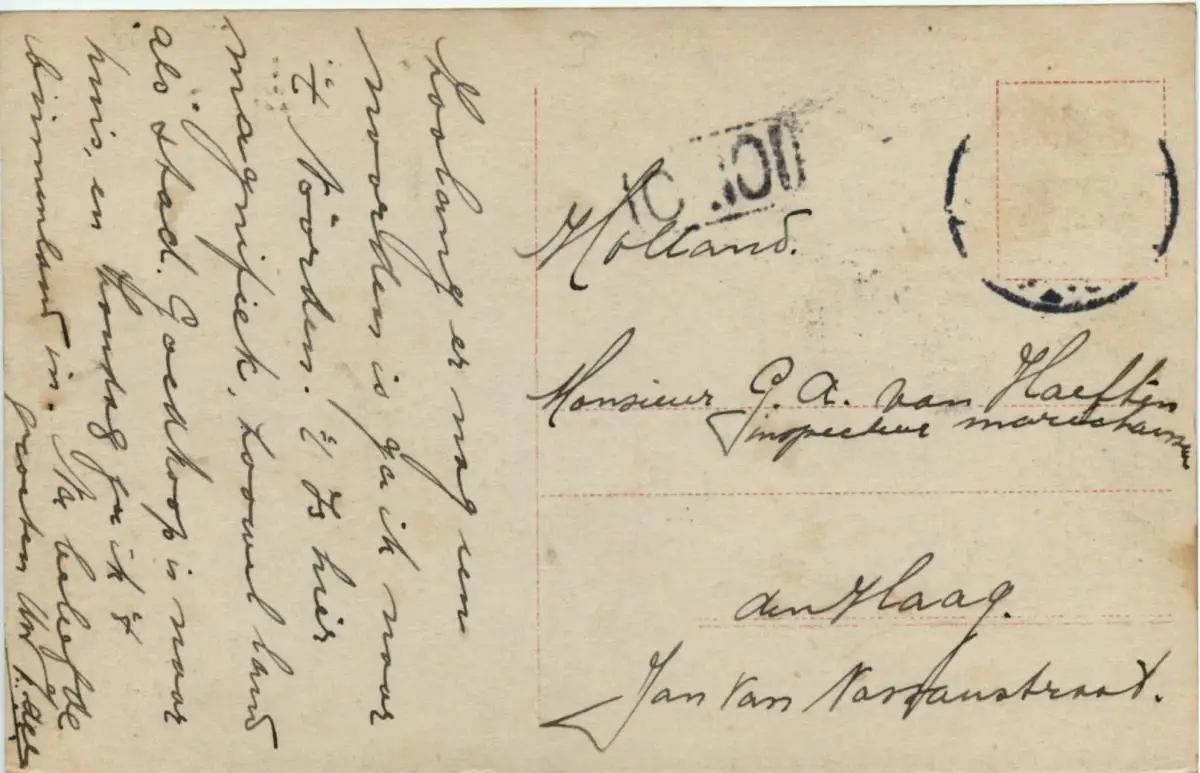 Zoolang er nog een
noorden is ga ik naar
't Noorden. 't Is hier
magnifiek, zoowel land
als stad. Goedkoop is naar
huis, en Zondag ga ik 't
binnenland in. Na beleefde
groeten Uw
Holland.
Monsieur G. A. van Haeften
inspecteur marechaussee
den Haag.
Jan van Nassaustraat.